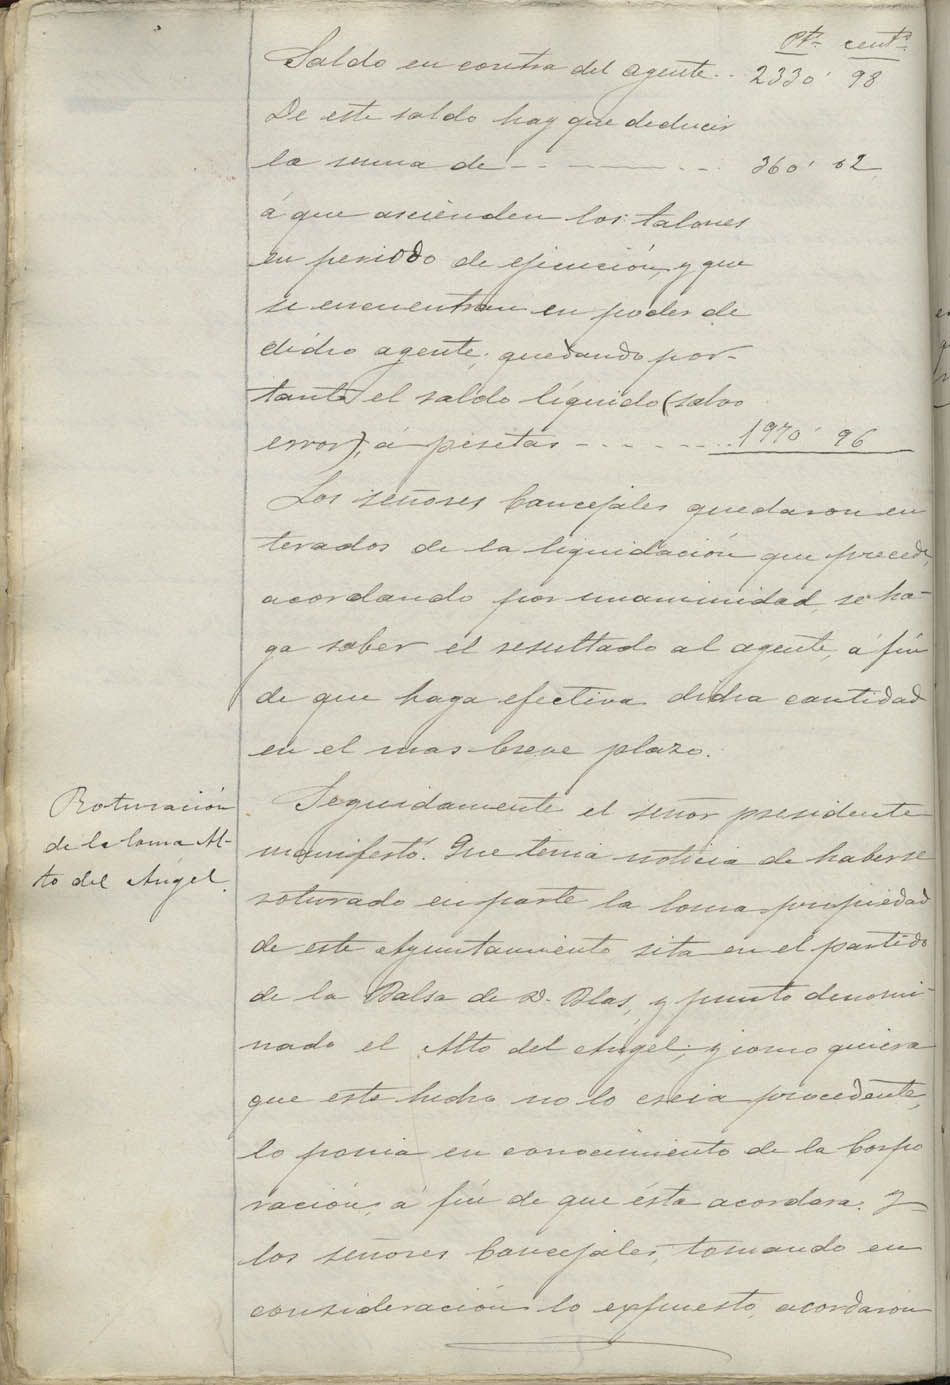 Pts. cents.
Saldo en contra del agente.. 2330' 98
De este saldo hay que deducir
la suma de - - - - - - 360' 02
á que ascienden los talones
en periodo de ejecución, y que
se encuentran en poder de
dicho agente; quedando por-
tanto el saldo líquido (salvo
error), á pesetas - - - - - - 1970' 96
Los señores Concejales quedaron en
terados de la liquidación que precede,
acordando por unanimidad, se ha-
ga saber el resultado al agente, á fin
de que haga efectiva dicha cantidad
en el mas breve plazo.
Roturación
de la loma Al-
to del Angel.
Seguidamente el señor presidente
manifestó: Que tenia noticia de haberse
roturado en parte la loma propiedad
de este Ayuntamiento sita en el partido
de la Balsa de D. Blas, y punto denomi-
nado el Alto del Angel; y como quiera
que este hecho no lo creia procedente,
lo ponia en conocimiento de la Corpo
ración, á fin de que ésta acordara. Y
los señores Concejales, tomando en
consideración lo expuesto, acordaron